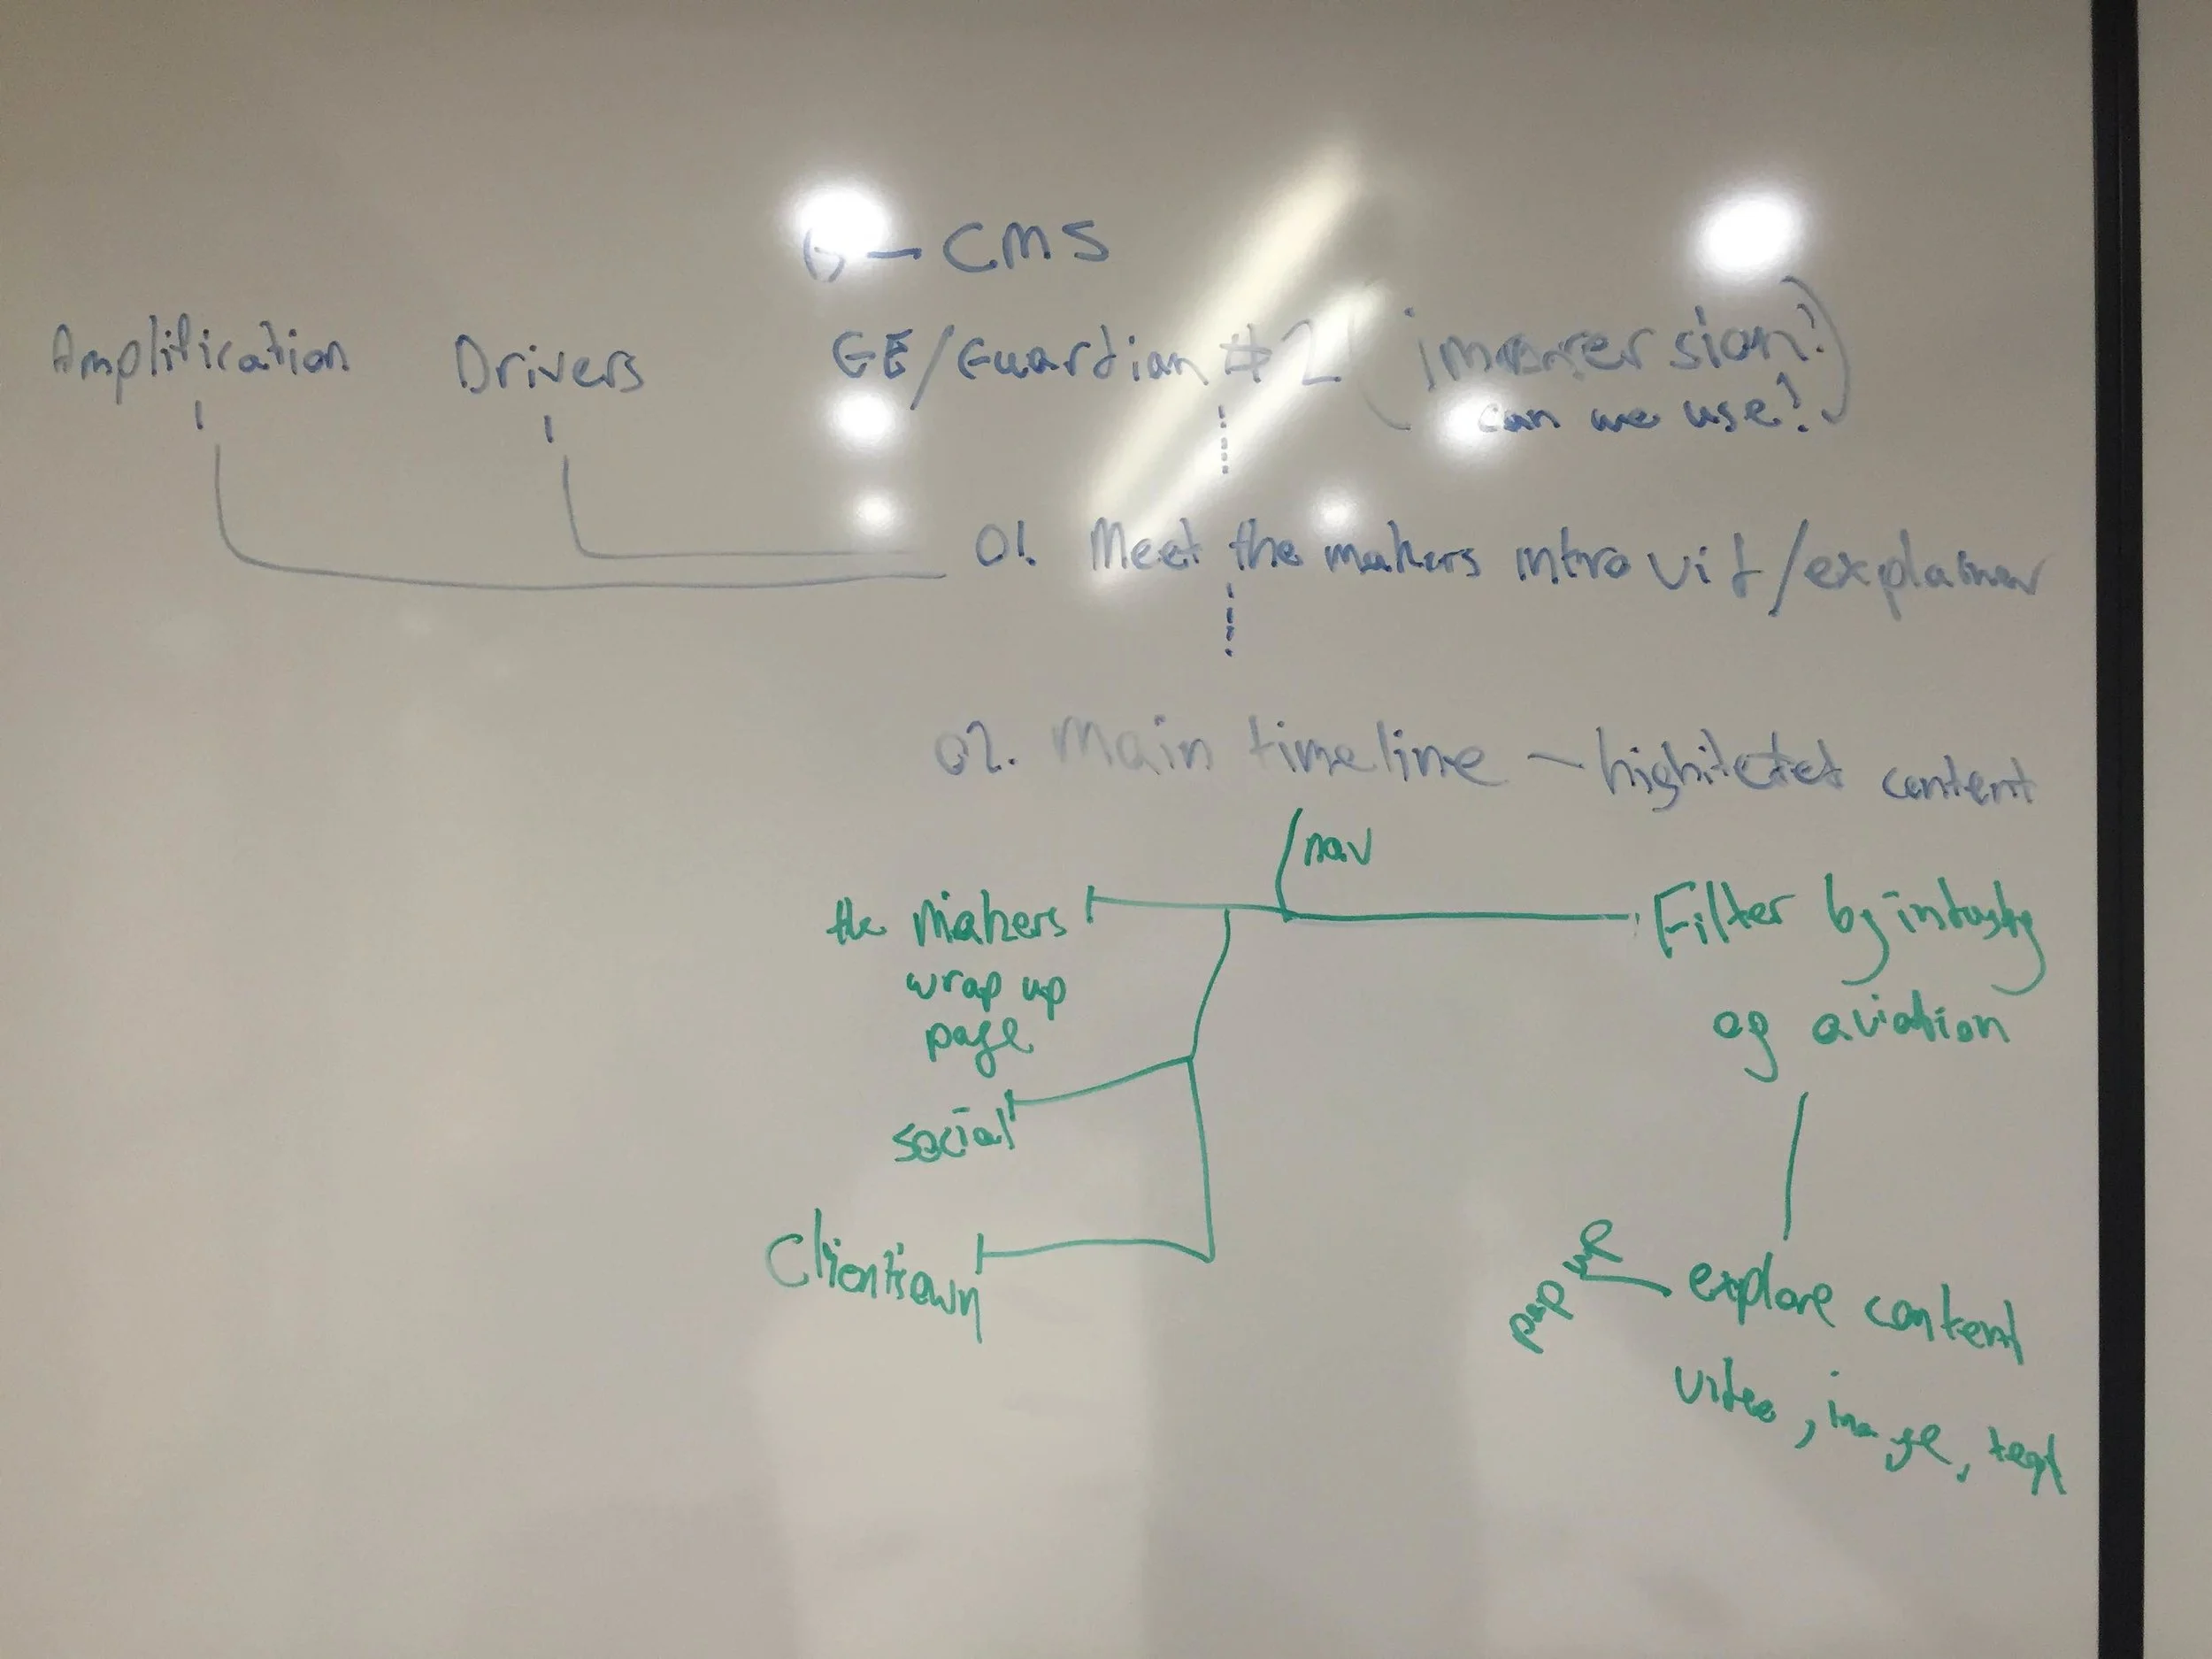 G - CMS
Amplification Drivers GE/Guardian #2 (immersion?
can we use?)
01. Meet the makers intro vid/explainer
02. Main timeline - content
nav
the Makers
wrap up
page
Filter by industry
eg aviation
social
pop up
explore content
video, image, text